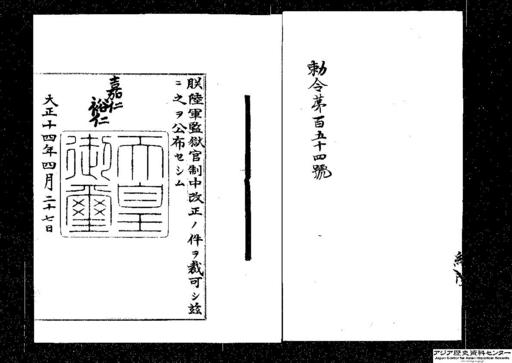 勅令第百五十四號
朕陸軍監獄官制中改正ノ件ヲ裁可シ玆
ニ之ヲ公布セシム
嘉仁
裕仁
天皇
御璽
大正十四年四月二十七日
アジア歴史資料センター
Japan Center for Asian Historical Records